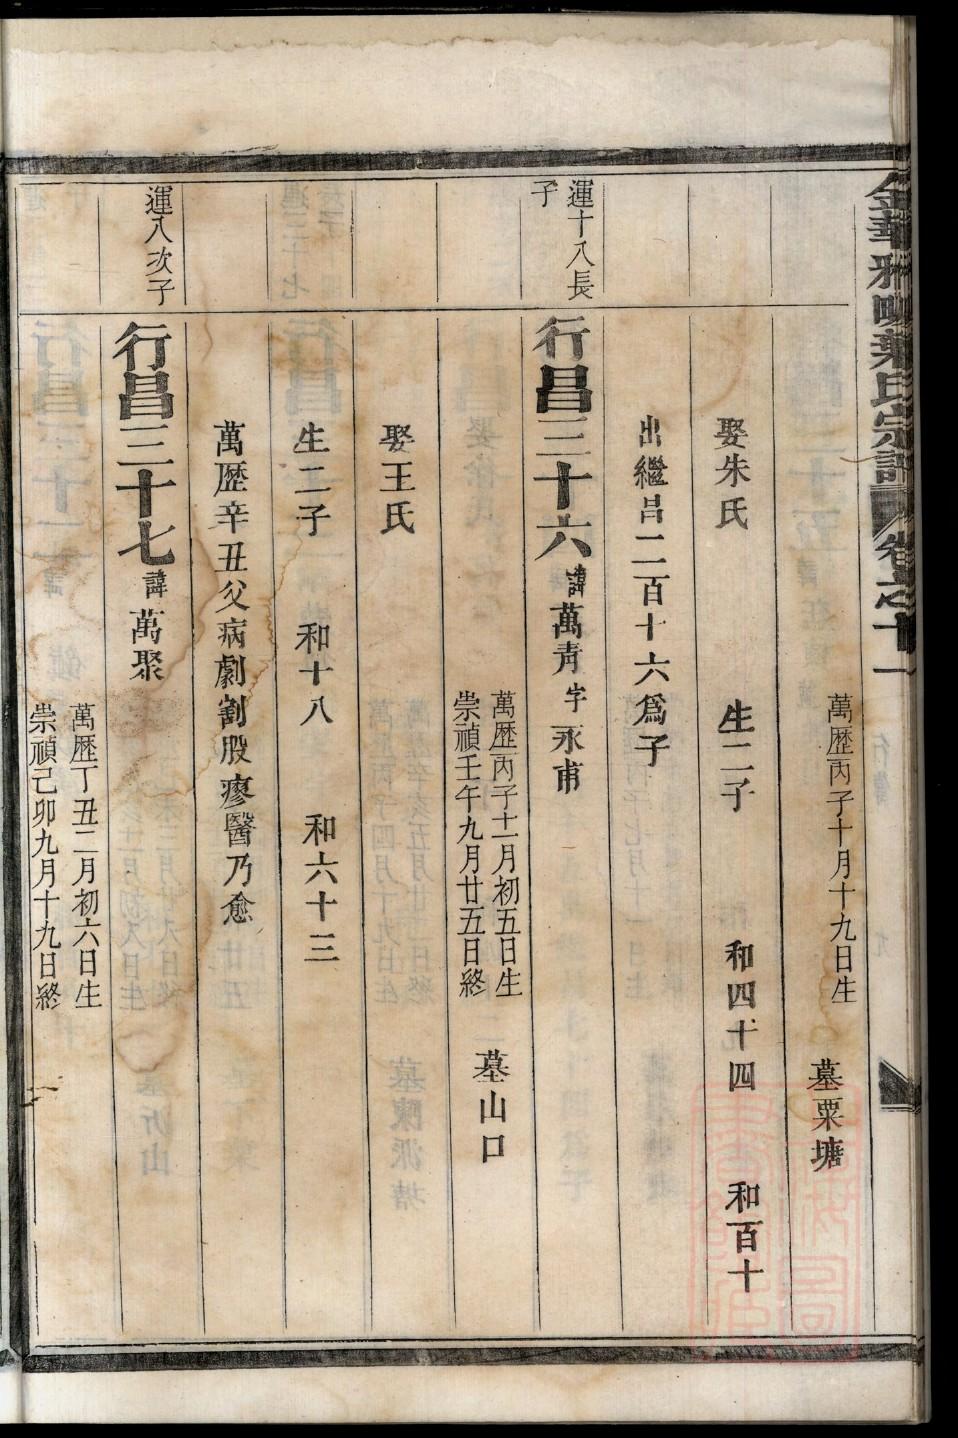 金華雅畈葉氏宗譜 卷之十一
萬歷丙子十月十九日生 墓栗塘
娶朱氏 生二子 和四十四 和百十
出繼昌二百十六爲子
運十八長子
行昌三十六 諱萬青 字永甫
萬歷丙子十一月初五日生
崇禎壬午九月廿五日終
墓山口
娶王氏
生二子 和十八 和六十三
萬歷辛丑父病劇割股療醫乃愈
運八次子
行昌三十七 諱萬聚
萬歷丁丑二月初六日生
崇禎己卯九月十九日終